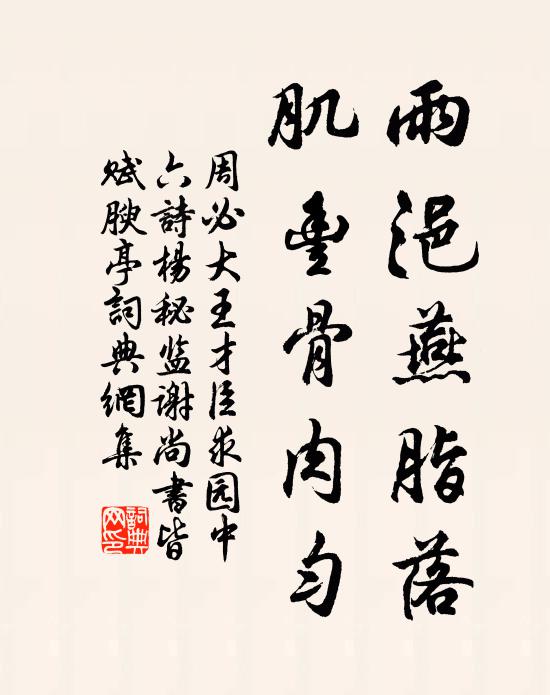 雨浥燕脂落
肌豊骨肉匀
周必大王才臣求园中
六詩楊秘监谢尚書皆
赋腴亭詞典網集
詞典
网印